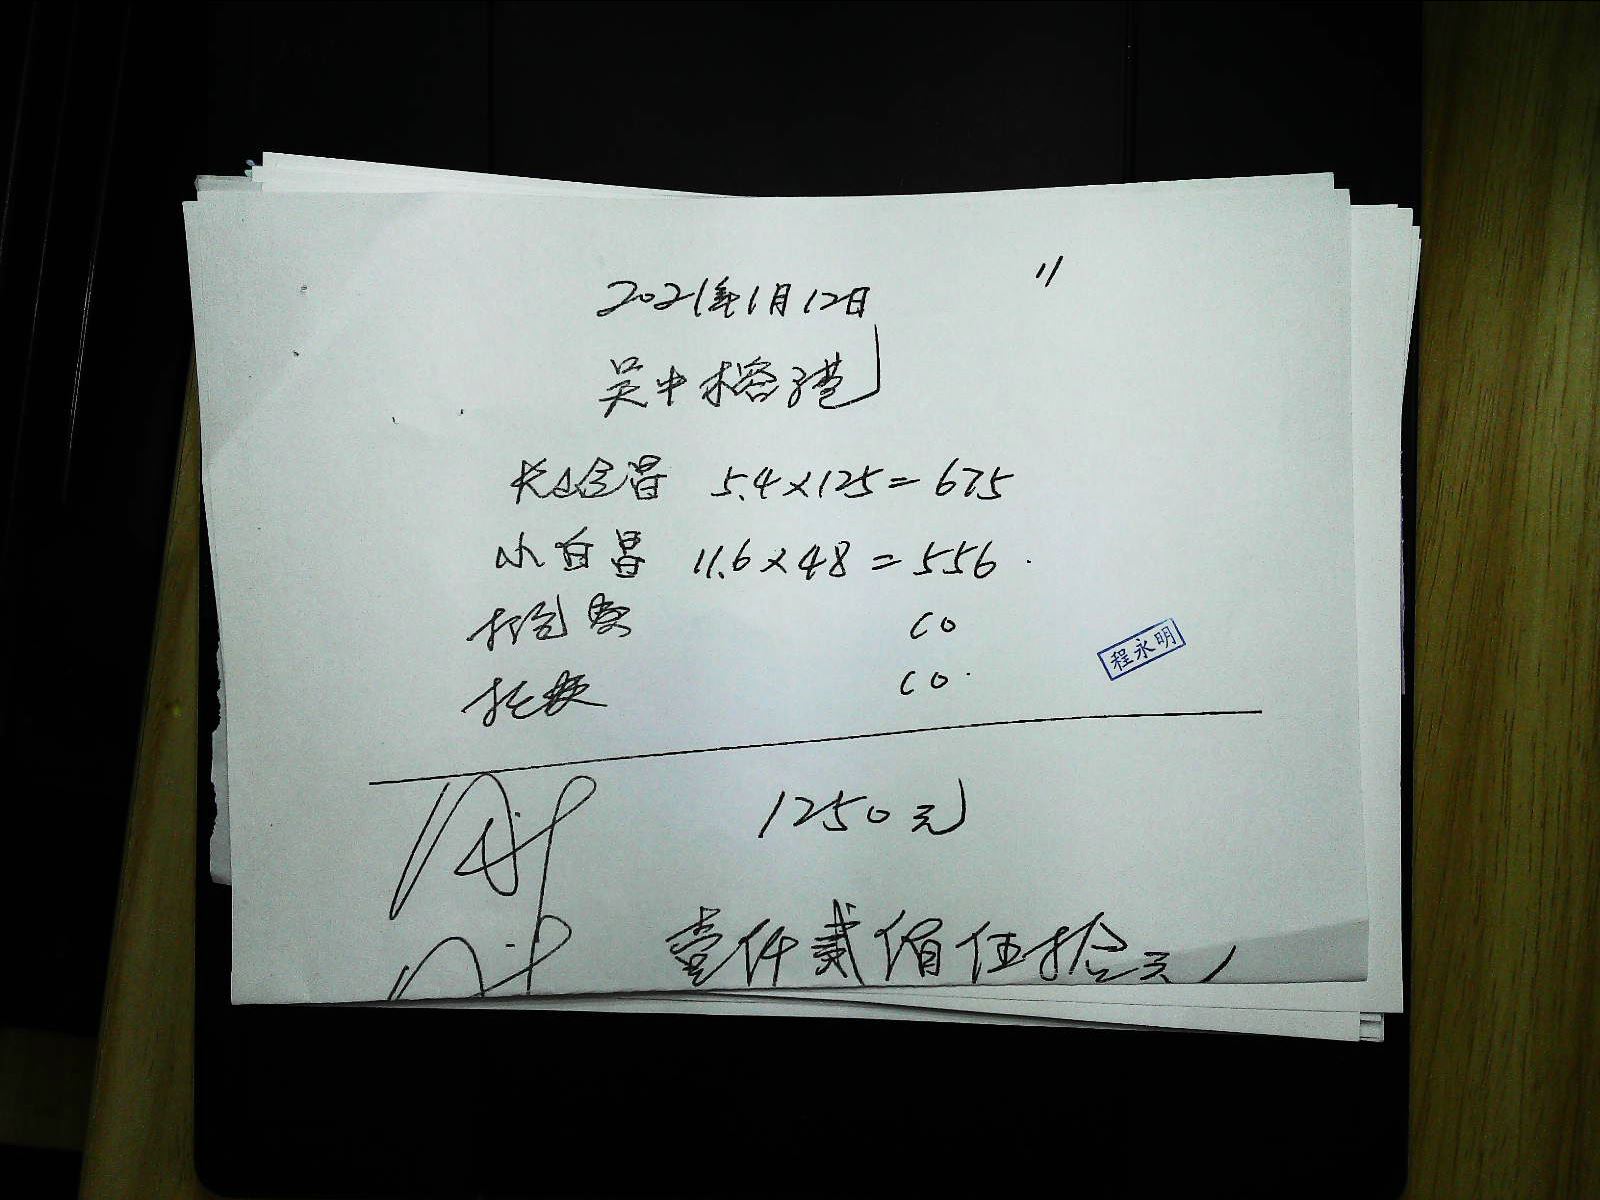 11
2021年1月12日
吴中榕港
长山鲳 5.4×125=675
小白鲳 11.6×48=556
打包费 10
托板 10
程永明
1250元
壹仟贰佰伍拾元